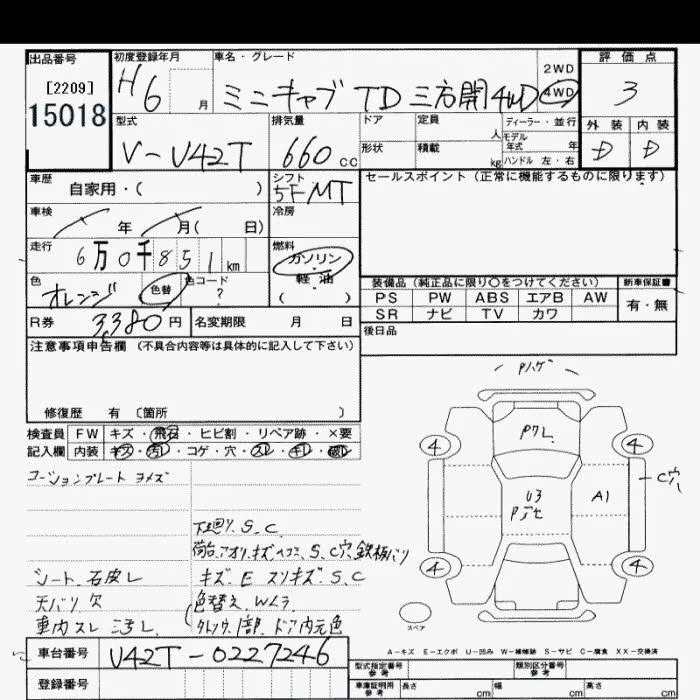 出品番号 初度登録年月 車名・グレード 2WD 評価点
[2209] H6 月 ミニキャブ TD 三方開 4WD 4WD 3
15018 型式 排気量 ドア 定員 人 ディーラー・並行 外装 内装
V-U42T 660cc 形状 積載 kg モデル年式 年 ハンドル 左・右 D D
車歴 自家用・( ) シフト 5F MT セールスポイント (正常に機能するものに限ります)
車検 年 月( 日) 冷房
走行 6万0千851km 燃料 ガソリン・軽油 ( )
色 オレンジ 色替 色コード ? 装備品 (純正品に限り○をつけてください) 新車保証書
PS PW ABS エアB AW 有・無
SR ナビ TV カワ
R券 3,380円 名変期限 月 日 後日品
注意事項申告欄 (不具合内容等は具体的に記入して下さい)
修復歴 有 〔箇所 〕
検査員 FW キズ・飛石・ヒビ割・リペア跡・×要
記入欄 内装 キズ・汚レ・コゲ・穴・スレ・キレ・
コーションプレート ヨメズ
下廻り S、C
荷台、アオリ、キズ ヘコミ、S、C穴、鉄板バリ
シート、石皮レ キズ E スリキズ S、C
天バリ欠 色替え Wムラ
車内スレ ヨゴレ 1部、ドア内元色
Pハゲ
Pクレ
4 4
U3 A1 C穴
4 4
スペア
A-キズ E-エクボ U-凹み W-補修跡 S-サビ C-腐食 XX-交換済
車台番号 U42T-0227246 型式指定番号 参考 類別区分番号 参考
登録番号 車庫証明用 参考 長さ cm 幅 cm 高さ cm